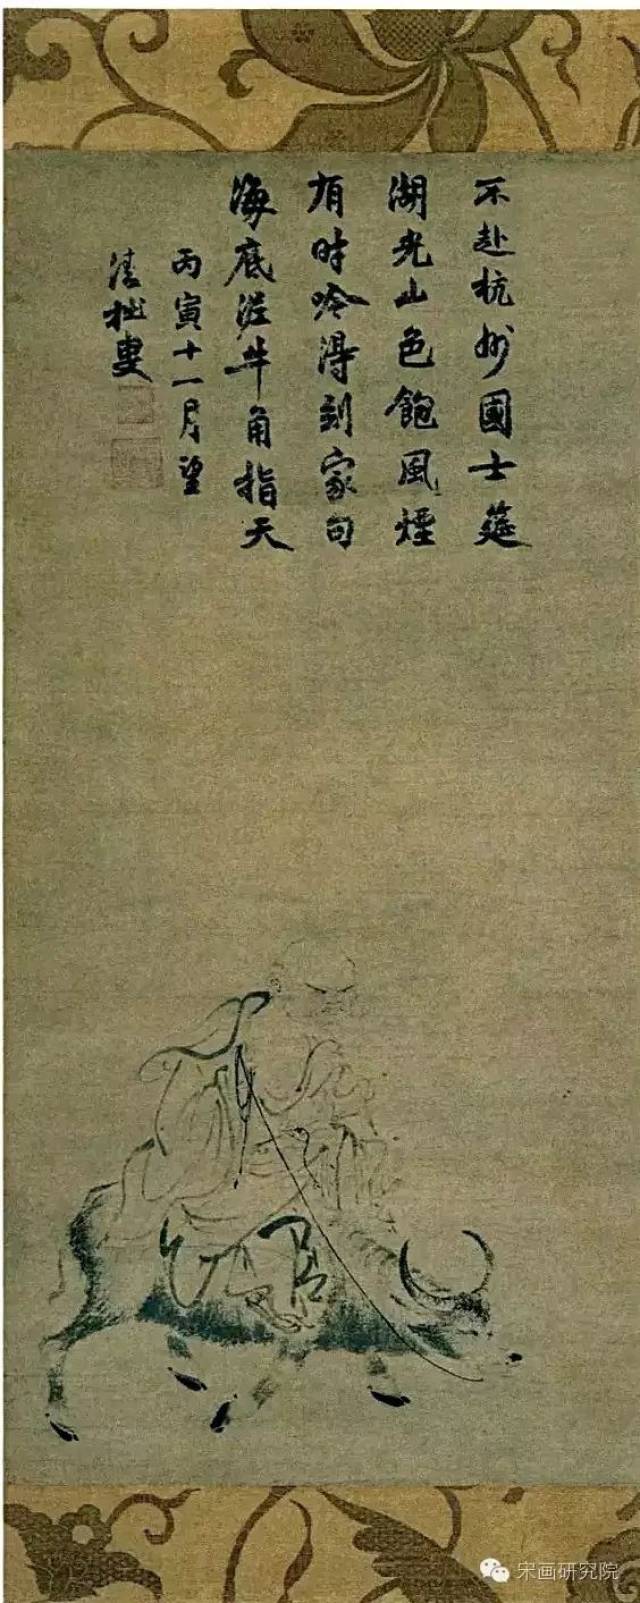 不赴杭州國士筵
湖光山色飽風煙
有時吟得到家句
海底泥牛角指天
丙寅十一月望
清拙叟
宋画研究院